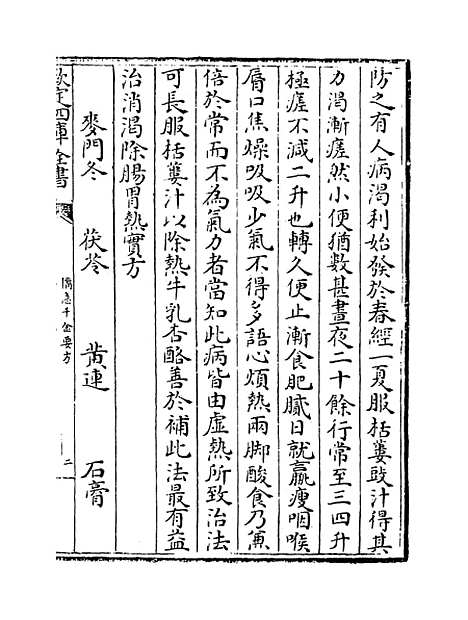 防之有人病渴利始發於春經一夏服栝蔞豉汁得其
力渴漸瘥然小便猶數甚晝夜二十餘行常至三四升
極瘥不減二升也轉久便止漸食肥膩日就羸瘦咽喉
脣口焦燥吸吸少氣不得多語心煩熱兩脚酸食乃兼
倍於常而不為氣力者當知此病皆由虛熱所致治法
可長服栝蔞汁以除熱牛乳杏酪善於補此法最有益
治消渴除腸胃熱實方
麥門冬 茯苓 黃連 石膏
欽定四庫全書
備急千金要方
二